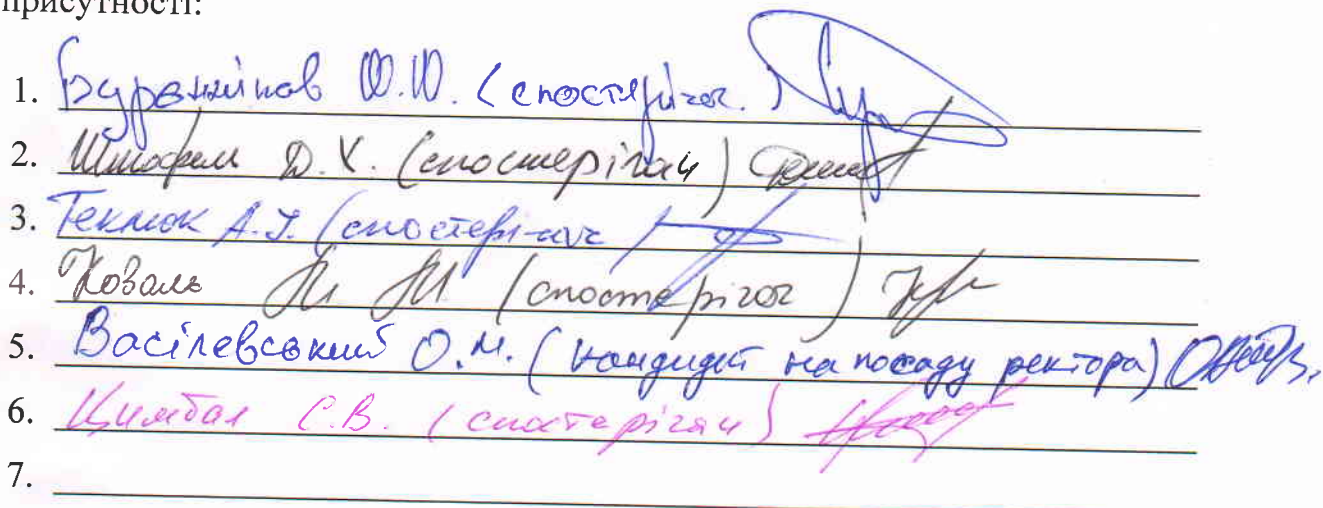 присутності:
1. Бурєнніков Ю.Ю. (спостерігач.)
2. Штофель Д.Х. (спостерігач)
3. Теклюк А.І. (спостерігач
4. Коваль (спостерігач)
5. Васілевський О.М. (кандидат на посаду ректора)
6. Цимбал С.В. (спостерігач)
7.